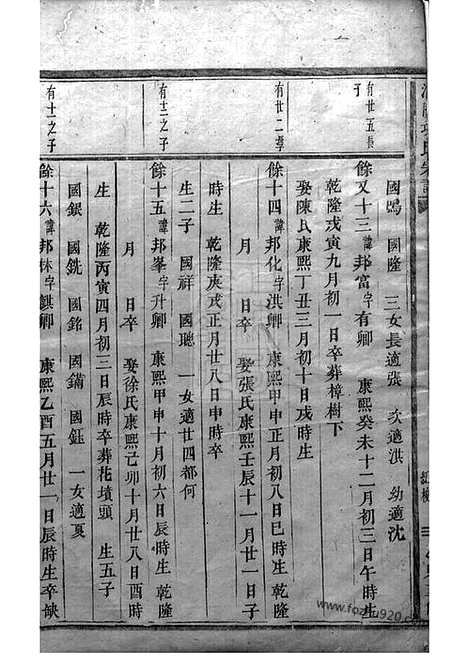 國鳴 國隆 三女長適張 次適洪 幼適沈
有廿五長子
餘又十三諱邦富字有卿 康熙癸未十二月初三日午時生
乾隆戊寅九月初一日卒葬樟樹下
娶陳氏康熙丁丑三月初十日戌時生
有廿二子
餘十四諱邦化字洪卿 康熙甲申正月初八日巳時生 乾隆
月 日卒 娶張氏康熙壬辰十一月廿一日子
時生 乾隆庚戌正月廿八日申時卒
生二子 國祥 國聰 一女適廿四都何
有十二之子
餘十五諱邦峯字升卿 康熙甲申十月初六日辰時生 乾隆
月 日卒 娶徐氏康熙己卯十月廿八日酉時
生 乾隆丙寅四月初三日辰時卒葬花墳頭 生五子
國銀 國銑 國銘 國鏞 國鈺 一女適夏
有十一之子
餘十六諱邦林字麒卿 康熙乙酉五月廿一日辰時生卒缺
www.fozhu920.com